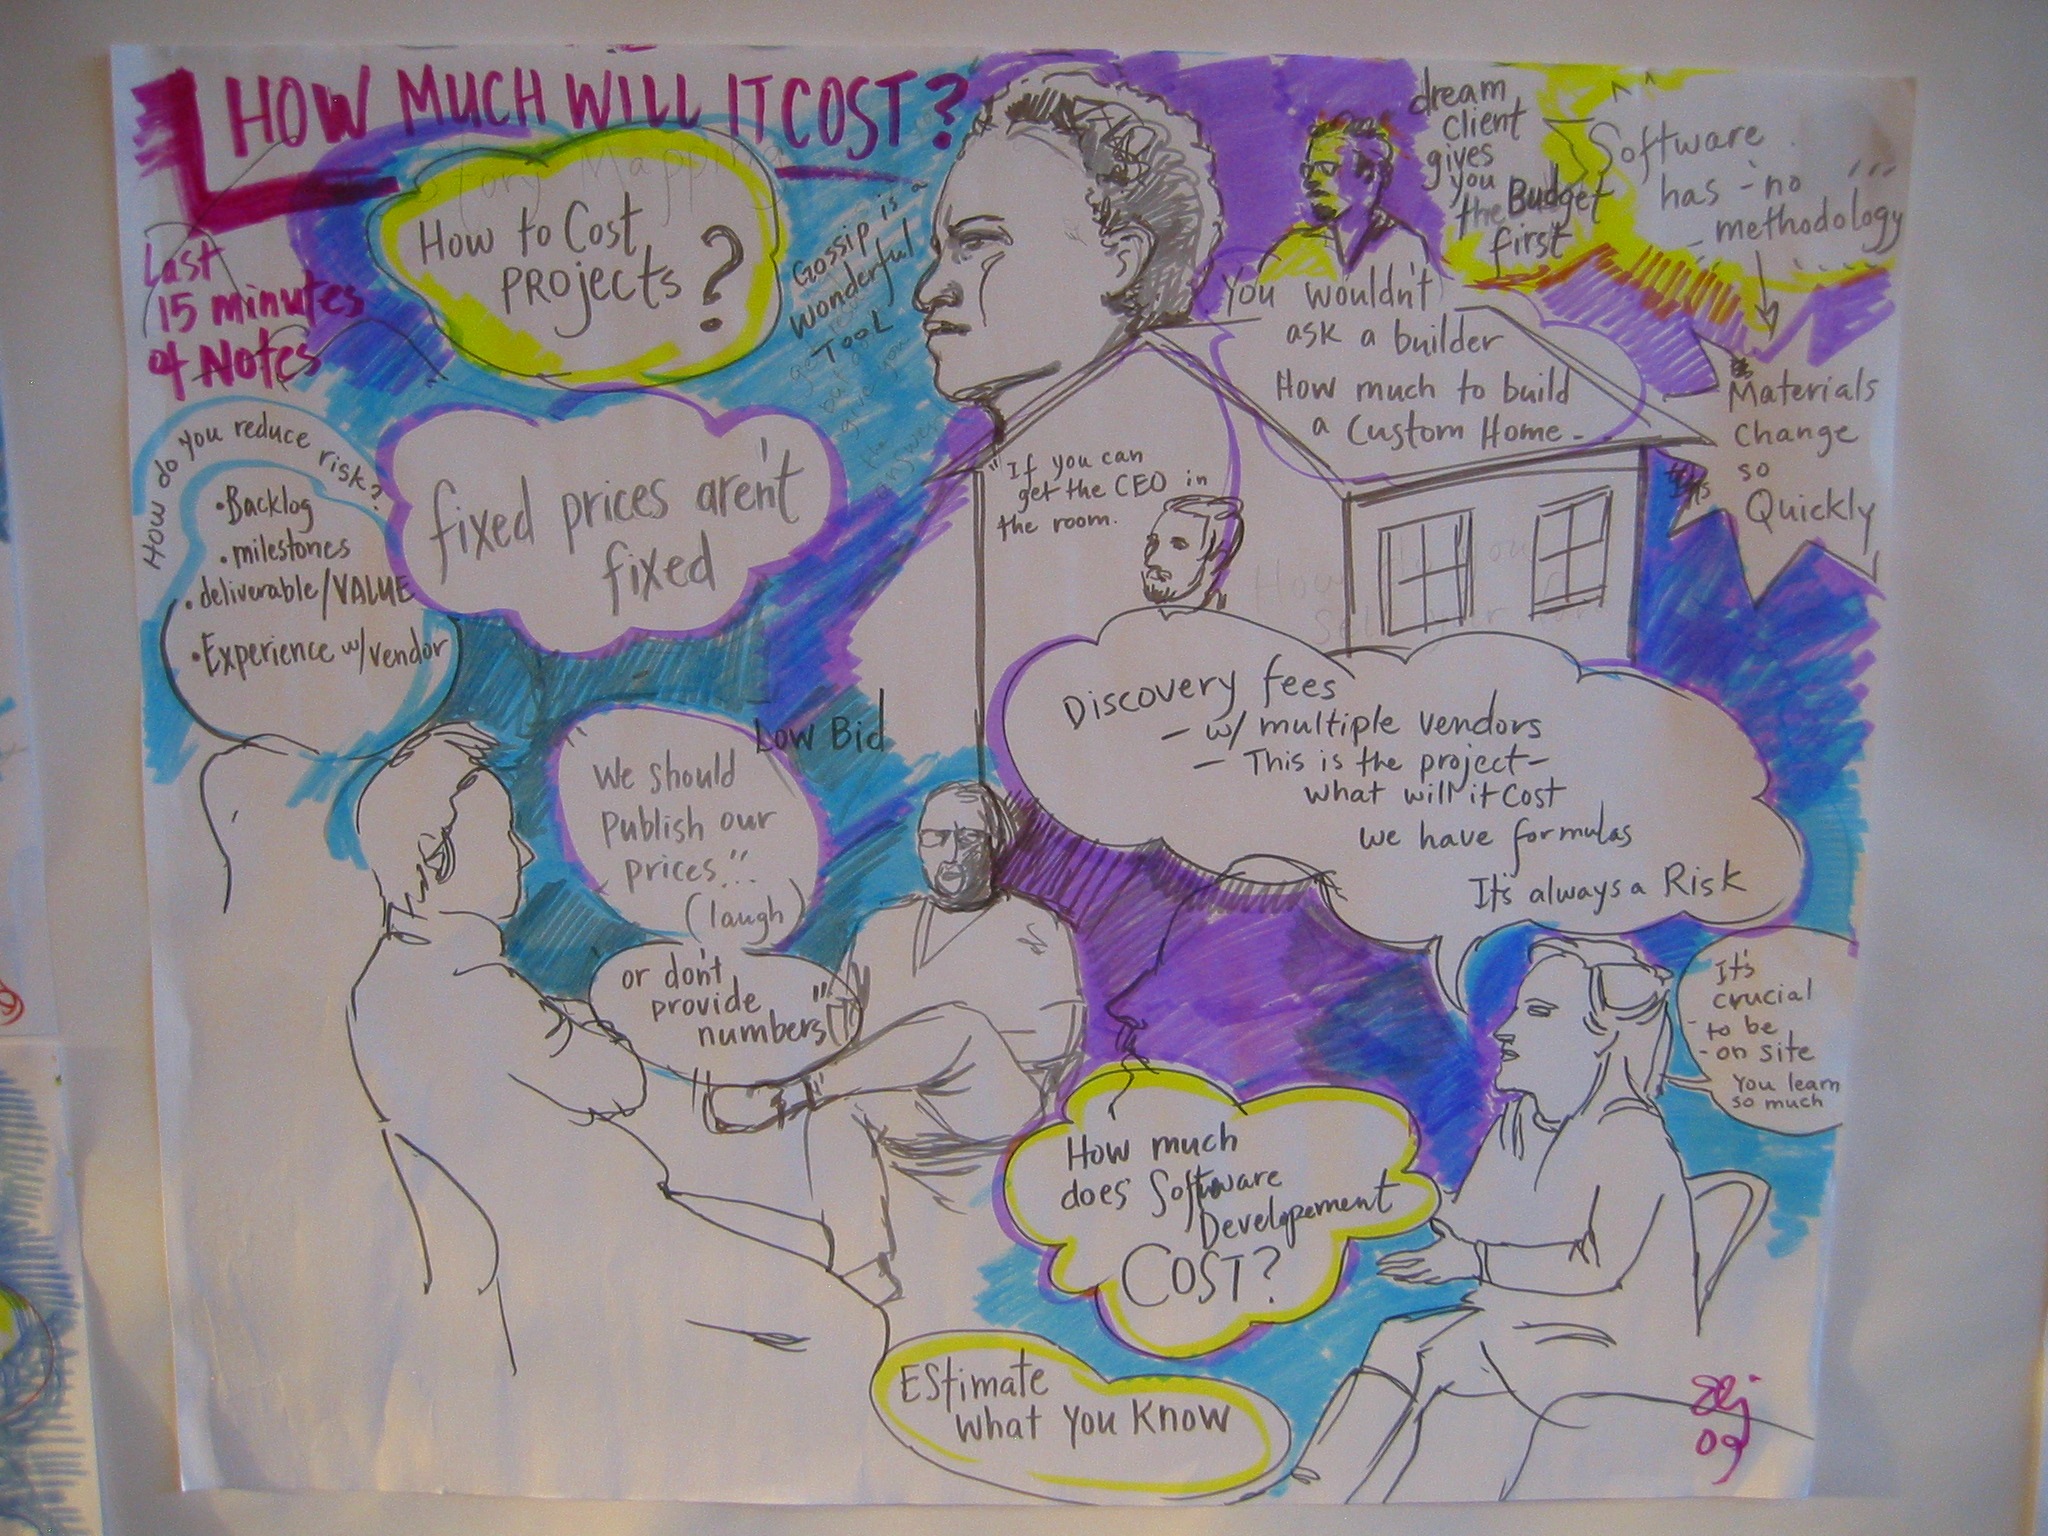 HOW MUCH WILL IT COST?
Last
15 minutes
of Notes
Story Mapping
How to Cost
PROjects?
Gossip is a
Wonderful
TooL
dream
client
gives
you
the Budget
first
Software
has - no
methodology
...
You wouldn't
ask a builder
How much to build
a Custom Home -
Materials
Change
so
Quickly
How do you reduce risk?
• Backlog
• milestones
• deliverable/VALUE
• Experience w/vendor
fixed prices aren't
fixed
"If you can
get the CEO in
the room.
Discovery fees
- w/ multiple vendors
- This is the project -
what will it cost
we have formulas
It's always a Risk
Low Bid
"We should
Publish our
prices..."
(laugh)
"or don't
provide
numbers"
It's
crucial
- to be
- on site
You learn
so much
How much
does Software
Developement
COST?
EStimate
What You Know
09